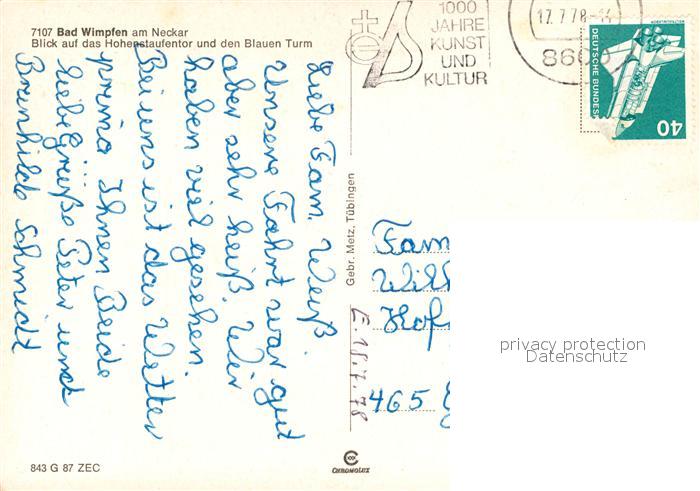 7107 Bad Wimpfen am Neckar
Blick auf das Hohenstaufentor und den Blauen Turm
Liebe Fam. Weiß.
Unsere Fahrt war gut
aber sehr heiß. Wir
haben viel gesehen.
Bei uns ist das Wetter
prima Ihnen Beide
liebe Grüße Peter und
Brunhilde Schmidt
1000
JAHRE
KUNST
UND
KULTUR
17.7.78-14
860
DEUTSCHE BUNDES
40
Gebr. Metz, Tübingen
Fam
Will
Hof
465
E. 18.7.78
privacy protection
Datenschutz
843 G 87 ZEC
CHROMOLUX